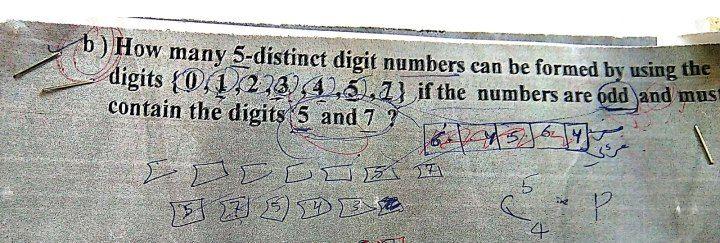 b) How many 5-distinct digit numbers can be formed by using the
digits {0,1,2,3,4,5,7} if the numbers are odd and must
contain the digits 5 and 7 ?
6 4 5 6 4
5 7
5 7 5 4 3
5
C P
4